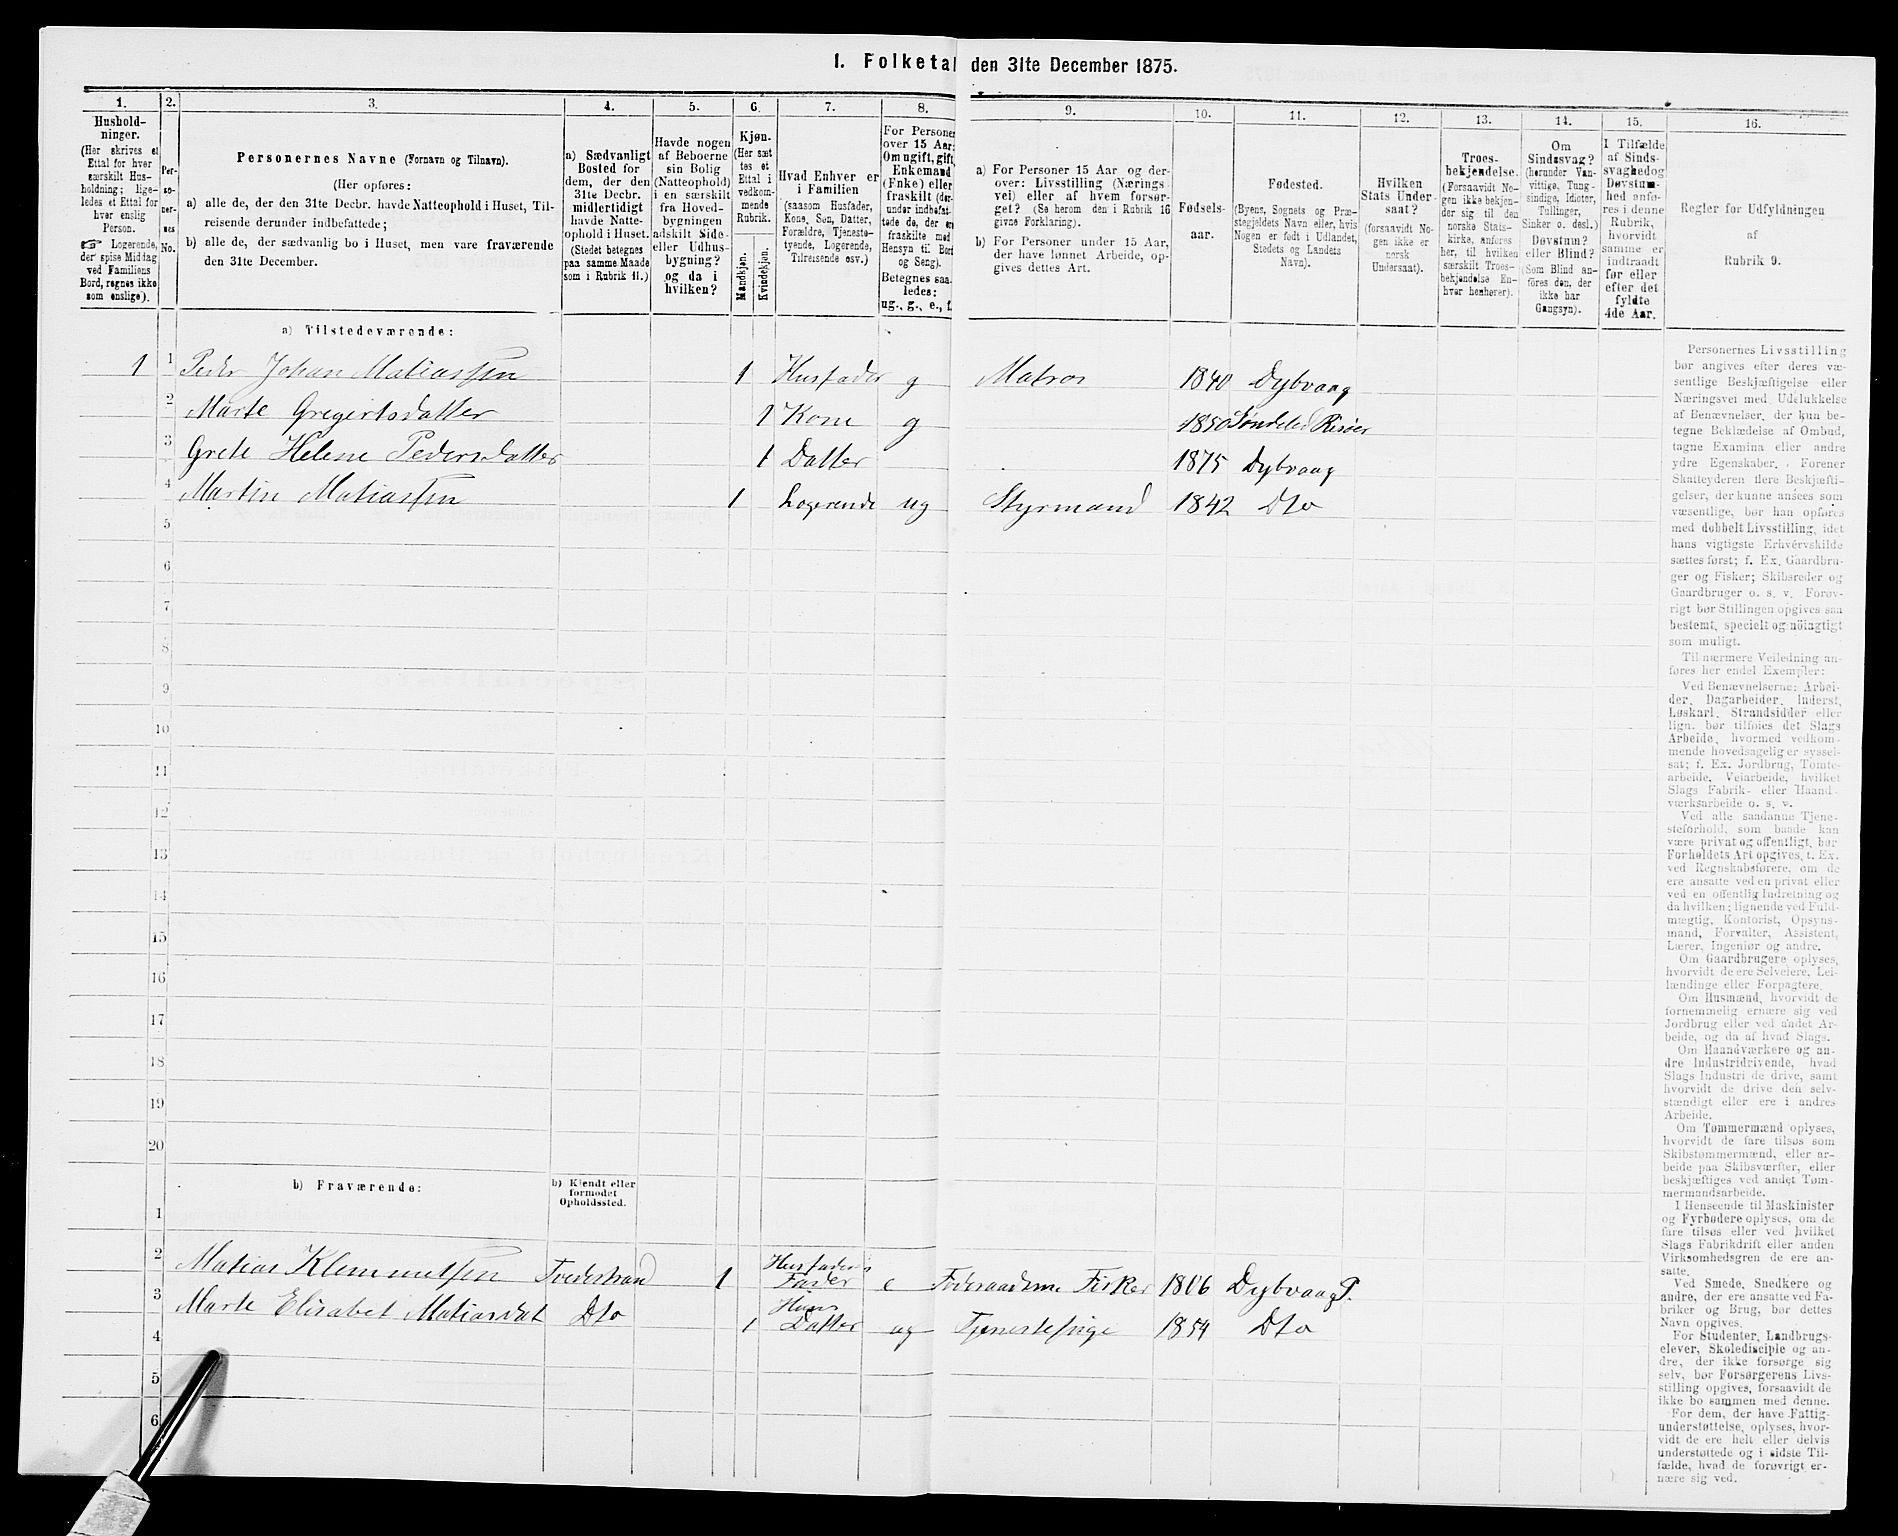 1. Folketal den 31te December 1875.
1. 2. 3. 4. 5. 6. 7. 8. 9. 10. 11. 12. 13. 14. 15. 16.
Hushold-
ninger.
(Her skrives et
Ettal for hver
særskilt Hus-
holdning; lige-
ledes et Ettal for
hver enslig
Person.
Logerende,
der spise Middag
ved Familiens
Bord, regnes ikke
som enslige).
Per-
so-
ner-
nes
No.
Personernes Navne (Fornavn og Tilnavn).
(Her opføres:
a) alle de, der den 31te Decbr. havde Natteophold i Huset, Til-
reisende derunder indbefattede;
b) alle de, der sædvanlig bo i Huset, men vare fraværende
den 31te December.
a) Sædvanligt
Bosted for
dem, der den
31te Decbr.
midlertidigt
havde Natte-
ophold i Huset.
(Stedet betegnes
paa samme Maade
som i Rubrik 11.)
Havde nogen
af Beboerne
sin Bolig
(Natteophold)
i en særskilt
fra Hoved-
bygningen
adskilt Side-
eller Udhus-
bygning?
og da i
hvilken?
Kjøn.
(Her sæt-
tes et
Ettal i
vedkom-
mende
Rubrik.
Mandkjøn.
Kvindekjøn.
Hvad Enhver er
i Familien
(saasom Husfader,
Kone, Søn, Datter,
Forældre, Tjeneste-
tyende, Logerende,
Tilreisende osv.)
For Personer
over 15 Aar:
Om ugift, gift,
Enkemand
(Enke) eller
fraskilt (der-
under indbefat-
tede de, der ere
fraskilte med
Hensyn til Bord
og Seng).
Betegnes saa-
ledes:
ug., g., e., f.
a) For Personer 15 Aar og der-
over: Livsstilling (Nærings-
vei) eller af hvem forsør-
get? (Se herom den i Rubrik 16
givne Forklaring).
b) For Personer under 15 Aar,
der have lønnet Arbeide, op-
gives dettes Art.
Fødsels-
aar.
Fødested.
(Byens, Sognets og Præ-
stegjeldets Navn eller, hvis
Nogen er født i Udlandet,
Stedets og Landets
Navn).
Hvilken
Stats Under-
saat?
(forsaavidt No-
gen ikke er
norsk
Undersaat).
Troes-
bekjendelse.
(Forsaavidt No-
gen ikke bekjen-
der sig til den
norske Stats-
kirke, anføres
her, til hvilken
særskilt Troes-
bekjendelse En-
hver henhører).
Om
Sindssvag?
(herunder Van-
vittige, Tung-
sindige, Idioter,
Tullinger,
Sinker o. desl.)
Døvstum?
eller Blind?
(Som Blind an-
føres den, der
ikke har
Gangsyn).
I Tilfælde
af Sinds-
svaghed og
Døvstum-
hed anfø-
res i denne
Rubrik,
hvorvidt
samme er
indtraadt
før eller
efter det
fyldte
4de Aar.
Regler for Udfyldningen
af
Rubrik 9.
a) Tilstedeværende:
1 1 Peder Johan Matiassen 1 Husfader g Matros 1840 Dybvaag
2 Marte Gregertsdatter 1 Kone g 1850 Søndeled Risøer
3 Grete Helene Pedersdatter 1 Datter 1875 Dybvaag
4 Martin Matiassen 1 Logerende ug Styrmand 1842 Dto
5
6
7
8
9
10
11
12
13
14
15
16
17
18
19
20
b) Fraværende:
b) Kjendt eller
formodet
Opholdssted.
1
2 Matias Klemmetsen Tvedestrand 1 Husfaders Fader e Føderaadsm Fisker 1806 Dybvaag P.
3 Marte Elisabet Matiasdat Dto 1 Hans Datter ug Tjenestepige 1854 Dto
4
5
6
Personernes Livsstilling
bør angives efter deres væ-
sentlige Beskjæftigelse eller
Næringsvei med Udelukkelse
af Benævnelser, der kun be-
tegne Beklædelse af Ombud,
tagne Examina eller andre
ydre Egenskaber. Forener
Skatteyderen flere Beskjæfti-
gelser, der kunne ansees som
væsentlige, bør han opføres
med dobbelt Livsstilling, idet
hans vigtigste Erhvervskilde
sættes først; f. Ex. Gaardbru-
ger og Fisker; Skibsreder og
Gaardbruger o. s. v. Forøv-
rigt bør Stillingen opgives saa
bestemt, specielt og nöiagtigt
som muligt.
Til nærmere Veiledning an-
føres her endel Exempler:
Ved Benævnelserne: Arbei-
der, Dagarbeider, Inderst,
Løskarl, Strandsidder eller
lign. bør tilføies det Slags
Arbeide, hvormed vedkom-
mende hovedsagelig er syssel-
sat; f. Ex. Jordbrug, Tomte-
arbeide, Veiarbeide, hvilket
Slags Fabrik- eller Haand-
værksarbeide o. s. v.
Ved alle saadanne Tjene-
steforhold, som baade kan
være privat og offentligt, bør
Forholdets Art opgives, t. Ex.
ved Regnskabsførere, om de
ere ansatte ved en privat eller
ved en offentlig Indretning og
da hvilken; lignende ved Fuld-
mægtig, Kontorist, Opsyns-
mand, Forvalter, Assistent,
Lærer, Ingeniør og andre.
Om Gaardbrugere oplyses,
hvorvidt de ere Selveiere, Lei-
lændinge eller Forpagtere.
Om Husmænd, hvorvidt de
fornemmelig ernære sig ved
Jordbrug eller ved andet Ar-
beide, og da af hvad Slags.
Om Haandværkere og an-
dre Industridrivende, hvad
Slags Industri de drive, samt
hvorvidt de drive den selv-
stændigt eller ere i andres
Arbeide.
Om Tømmermænd oplyses,
hvorvidt de fare tilsøs som
Skibstømmermænd, eller ar-
beide paa Skibsværfter, eller
beskjæftiges ved andet Tøm-
mermandsarbeide.
I Henseende til Maskinister
og Fyrbødere oplyses, om de
fare tilsøs eller ved hvilket
Slags Fabrikdrift eller anden
Virksomhedsgren de ere an-
satte.
Ved Smede, Snedkere og
andre, der ere ansatte ved Fa-
briker og Brug, bør dettes
Navn opgives.
For Studenter, Landbrugs-
elever, Skoledisciple og an-
dre, der ikke forsørge sig
selv, bør Forsørgerens Livs-
stilling opgives, forsaavidt de
ikke bo sammen med denne.
For dem, der have Fattig-
understøttelse, oplyses, hvor-
vidt de ere helt eller delvis
understøttede og i sidste Til-
fælde, hvad de forøvrigt er-
nære sig ved.